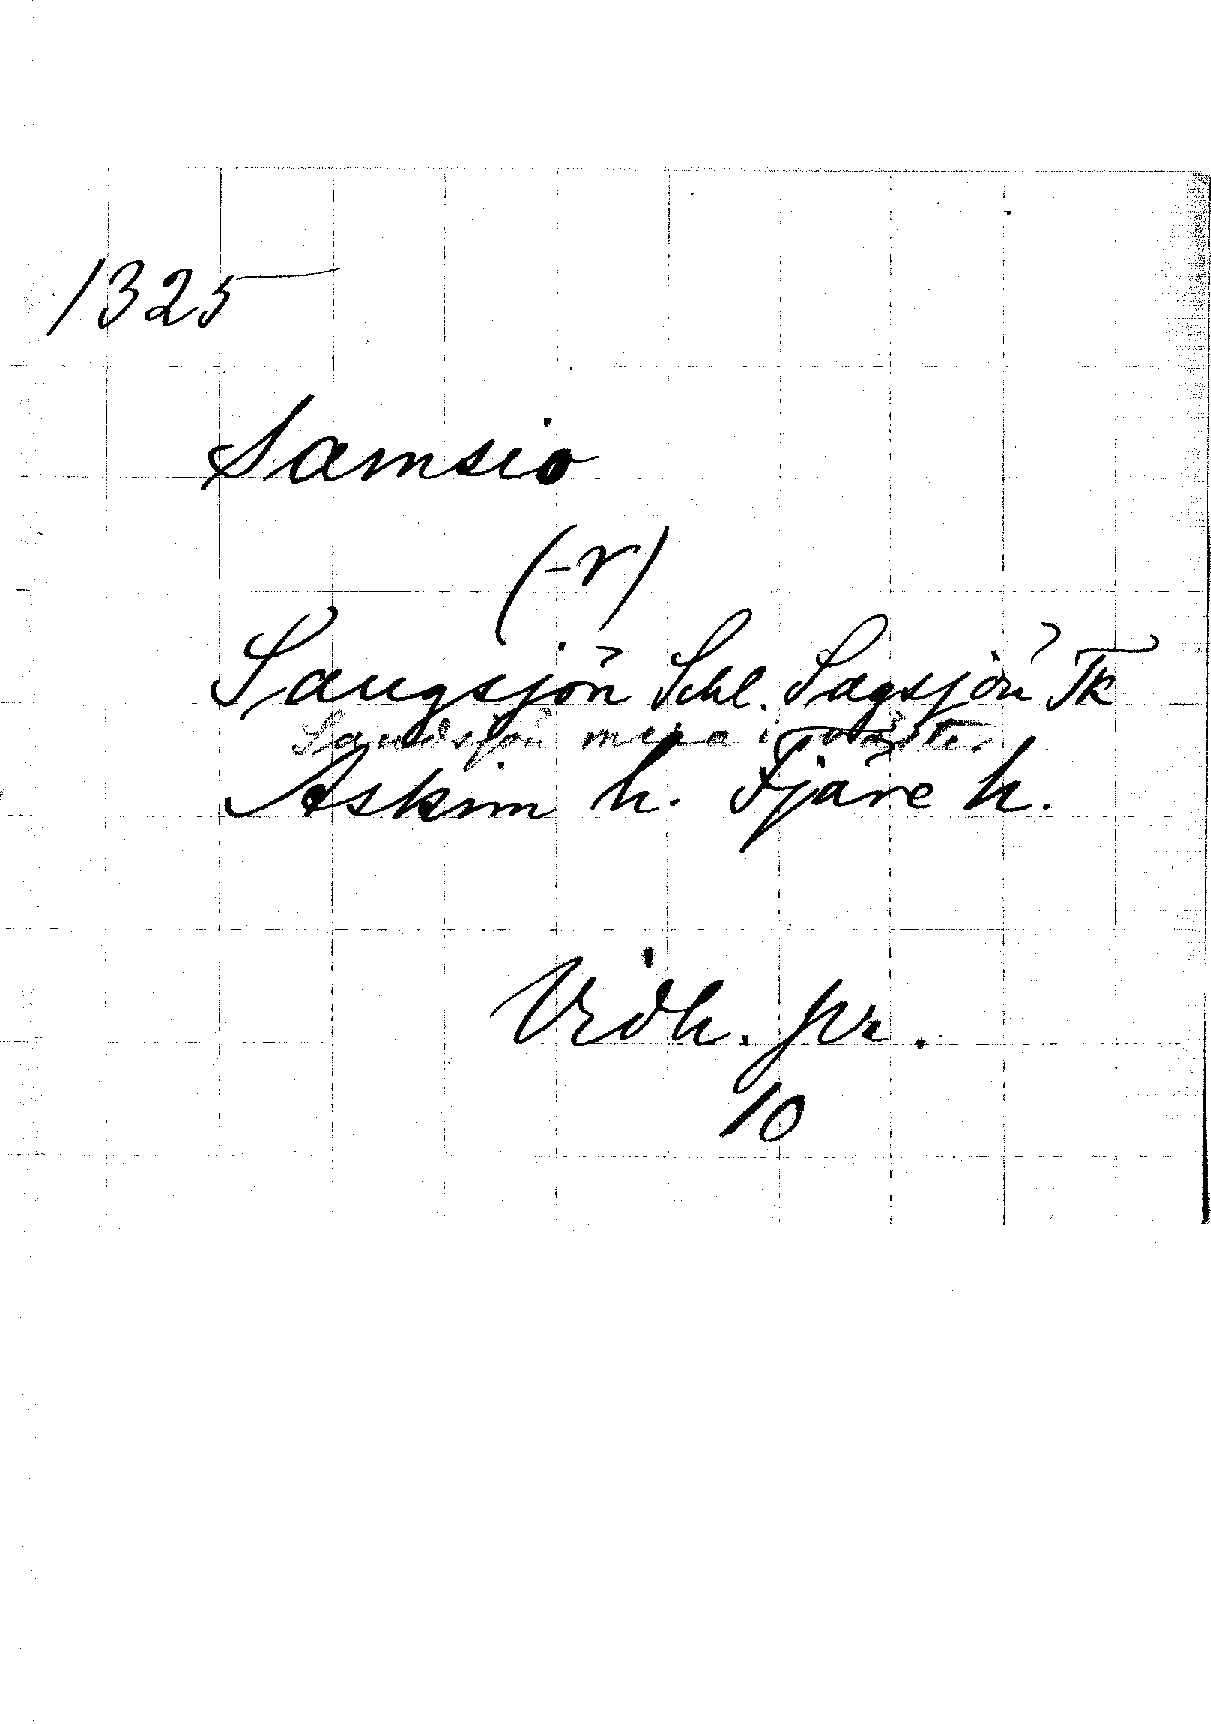 1325
Samsio
(-r)
Sangsjön Schl. Sagsjön Tk
Sandsjön mera i
Askim h. Fjäre h.
Vidh. pr.
10